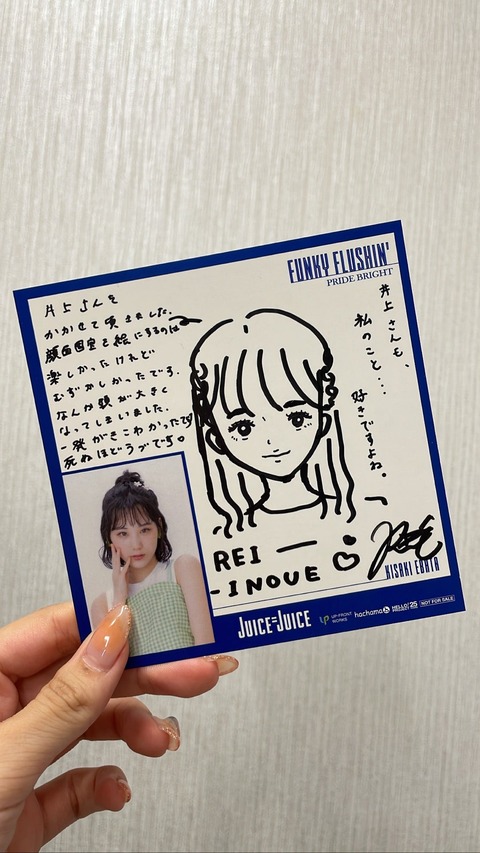 FUNKY FLUSHIN'
PRIDE BRIGHT
井上さんを
かかせて頂きました。
顔面国宝を絵にするのは
楽しかったけれど
むずかしかったです。
なんか頭が大きく
なってしまいました。
一発がきこわかったです
死ぬほどラブです♡
井上さんも、
私のこと...
好きですよね。
REI
INOUE
KISAKI EBATA
JUICE=JUICE
UP-FRONT WORKS
hachama
HELLO! PROJECT 25
NOT FOR SALE